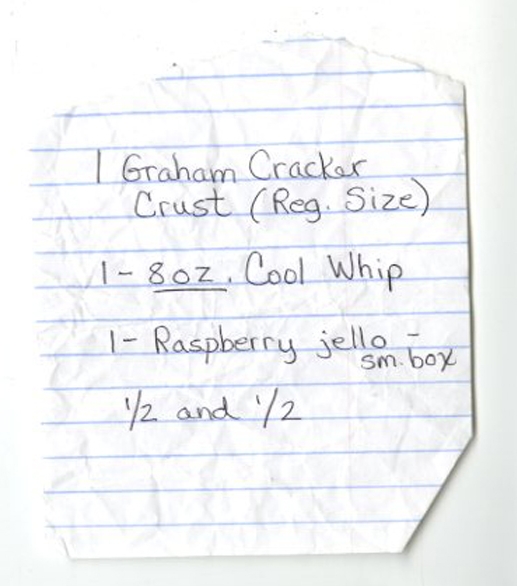 1 Graham Cracker
Crust (Reg. Size)
1 - 8 oz. Cool Whip
1 - Raspberry jello -
sm. box
1/2 and 1/2